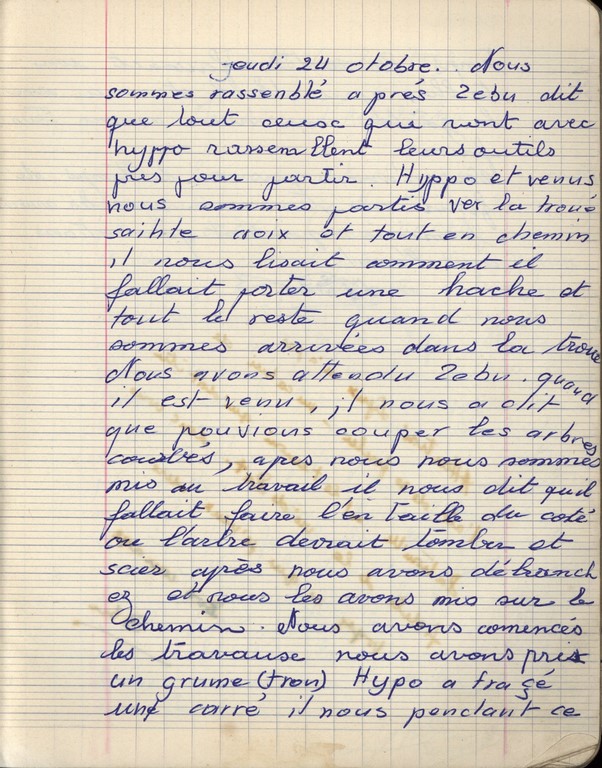 jeudi 24 otobre.. Nous
sommes rassemblé aprés Zebu dit
que tout ceuse qui vont avec
hyppo rassemblent leurs outils
près pour partir. Hyppo et venus
nous sommes partis ver la troué
sainte croix et tout en chemin
il nous lisait comment il
fallait porter une hache et
tout le reste quand nous
sommes arrivées dans la troué
Nous avons attendu Zebu. quand
il est venu, il nous a dit
que pouvions couper les arbres
courbés, apes nous nous sommes
mis au travail il nous dit quil
fallait faire l'en taille du coté
ou l'arbre devrait tomber et
scier après nous avons débranch
er et nous les avons mis sur le
chemin. Nous avons comencés
les travause nous avons pris
un grume (tron) Hypo a fracé
une carré il nous pendant ce